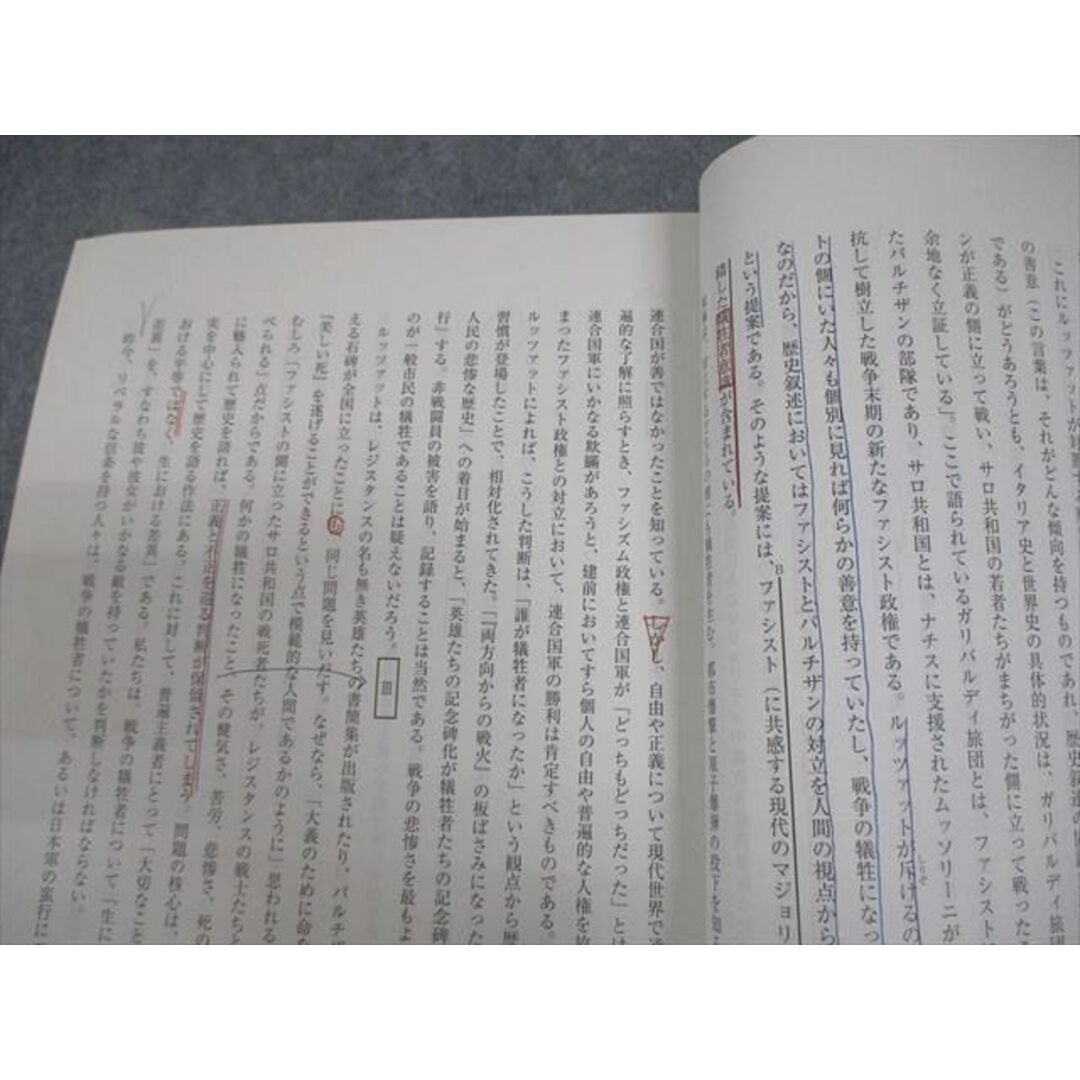 これにルッツァットが対
の善意（この言葉は、それがどんな傾向を持つものであれ、歴史叙述の
である）がどうあろうとも、イタリア史と世界史の具体的状況は、ガリバルディ旅団
ンが正義の側に立って戦い、サロ共和国の若者たちがまちがった側に立って戦った
余地なく立証している」。ここで語られているガリバルディ旅団とは、ファシスト
たパルチザンの部隊であり、サロ共和国とは、ナチスに支援されたムッソリーニが
抗して樹立した戦争末期の新たなファシスト政権である。ルッツァットが斥けるの
しりぞ
トの側にいた人々も個別に見れば何らかの善意を持っていたし、戦争の犠牲になっ
なのだから、歴史叙述においてはファシストとパルチザンの対立を人間の視点から
という提案である。そのような提案には、ファシスト（に共感する現代のマジョリ
B
錯した犠牲者意識が含まれている。
連合国が善ではなかったことを知っている。しかし、自由や正義について現代世界で
遍的な了解に照らすとき、ファシズム政権と連合国軍が「どっちもどっちだった」とは
連合国軍にいかなる欺瞞があろうと、建前においてすら個人の自由や普遍的な人権を
まったファシスト政権との対立において、連合国軍の勝利は肯定すべきものである。
ルッツァットによれば、こうした判断は、「誰が犠牲者になったか」という観点から歴
習慣が登場したことで、相対化されてきた。「『両方向からの戦火』の板ばさみになった
人民の悲惨な歴史」への着目が始まると、「英雄たちの記念碑化が犠牲者たちの記念碑
行」する。非戦闘員の被害を語り、記録することは当然である。戦争の悲惨さを最もよ
のが一般市民の犠牲であることは疑えないだろう。 Ⅲ
ルッツァットは、レジスタンスの名も無き英雄たちの書簡集が出版されたり、パルチ
える石碑が全国に立ったことに も 同じ問題を見いだす。なぜなら、「大義のために命を
『美しい死』を遂げることができるという点で模範的な人間であるかのように」思われる
むしろ「ファシストの側に立ったサロ共和国の戦死者たちが、レジスタンスの戦士たちと
べられる」一点だからである。何かの犠牲になったこと、その健気さ、苦労、悲惨さ、死の
に魅入られて歴史を語れば、正義と不正を巡る判断が保留されてしまう。問題の核心は、
実を中心にして歴史を語る作法にある。これに対して、普遍主義者にとって「大切なこと
おける平等ではなく、生における差異」である。私たちは、戦争の犠牲者について「生に
差異」を、すなわち彼や彼女がいかなる敵を持っていたかを判断しなければならない。
昨今、リベラルな信条を持つ人々は、戦争の犠牲者について、あるいは日本軍の蛮行に